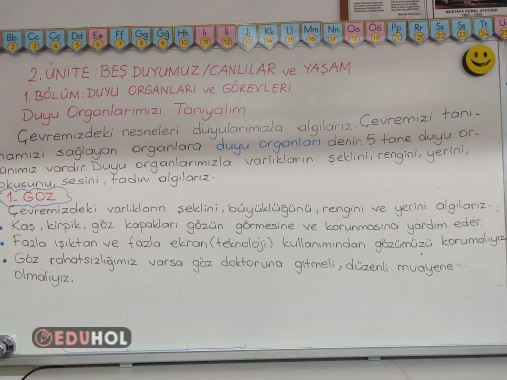 MUSTAFA KEMAL ATATÜRK
Bb Cc Çç Dd Ee Ff Gg Ğğ Hh Iı İi Jj Kk Ll Mm Nn Oo Öö Pp Rr Ss Şş Tt
2. ÜNİTE: BEŞ DUYUMUZ/CANLILAR ve YAŞAM
1. BÖLÜM: DUYU ORGANLARI ve GÖREVLERİ
Duyu Organlarımızı Tanıyalım
Çevremizdeki nesneleri duyularımızla algılarız. Çevremizi tanı-
mamızı sağlayan organlara duyu organları denir. 5 tane duyu or-
anımız vardır. Duyu organlarımızla varlıkların şeklini, rengini, yerini,
okusunu, sesini, tadını algılarız.
1. GÖZ
Çevremizdeki varlıkların şeklini, büyüklüğünü, rengini ve yerini algılarız.
• Kaş, kirpik, göz kapakları gözün görmesine ve korunmasına yardım eder.
• Fazla ışıktan ve fazla ekran (teknoloji) kullanımından gözümüzü korumalıyız
• Göz rahatsızlığımız varsa göz doktoruna gitmeli, düzenli muayene
olmalıyız.
EDUHOL